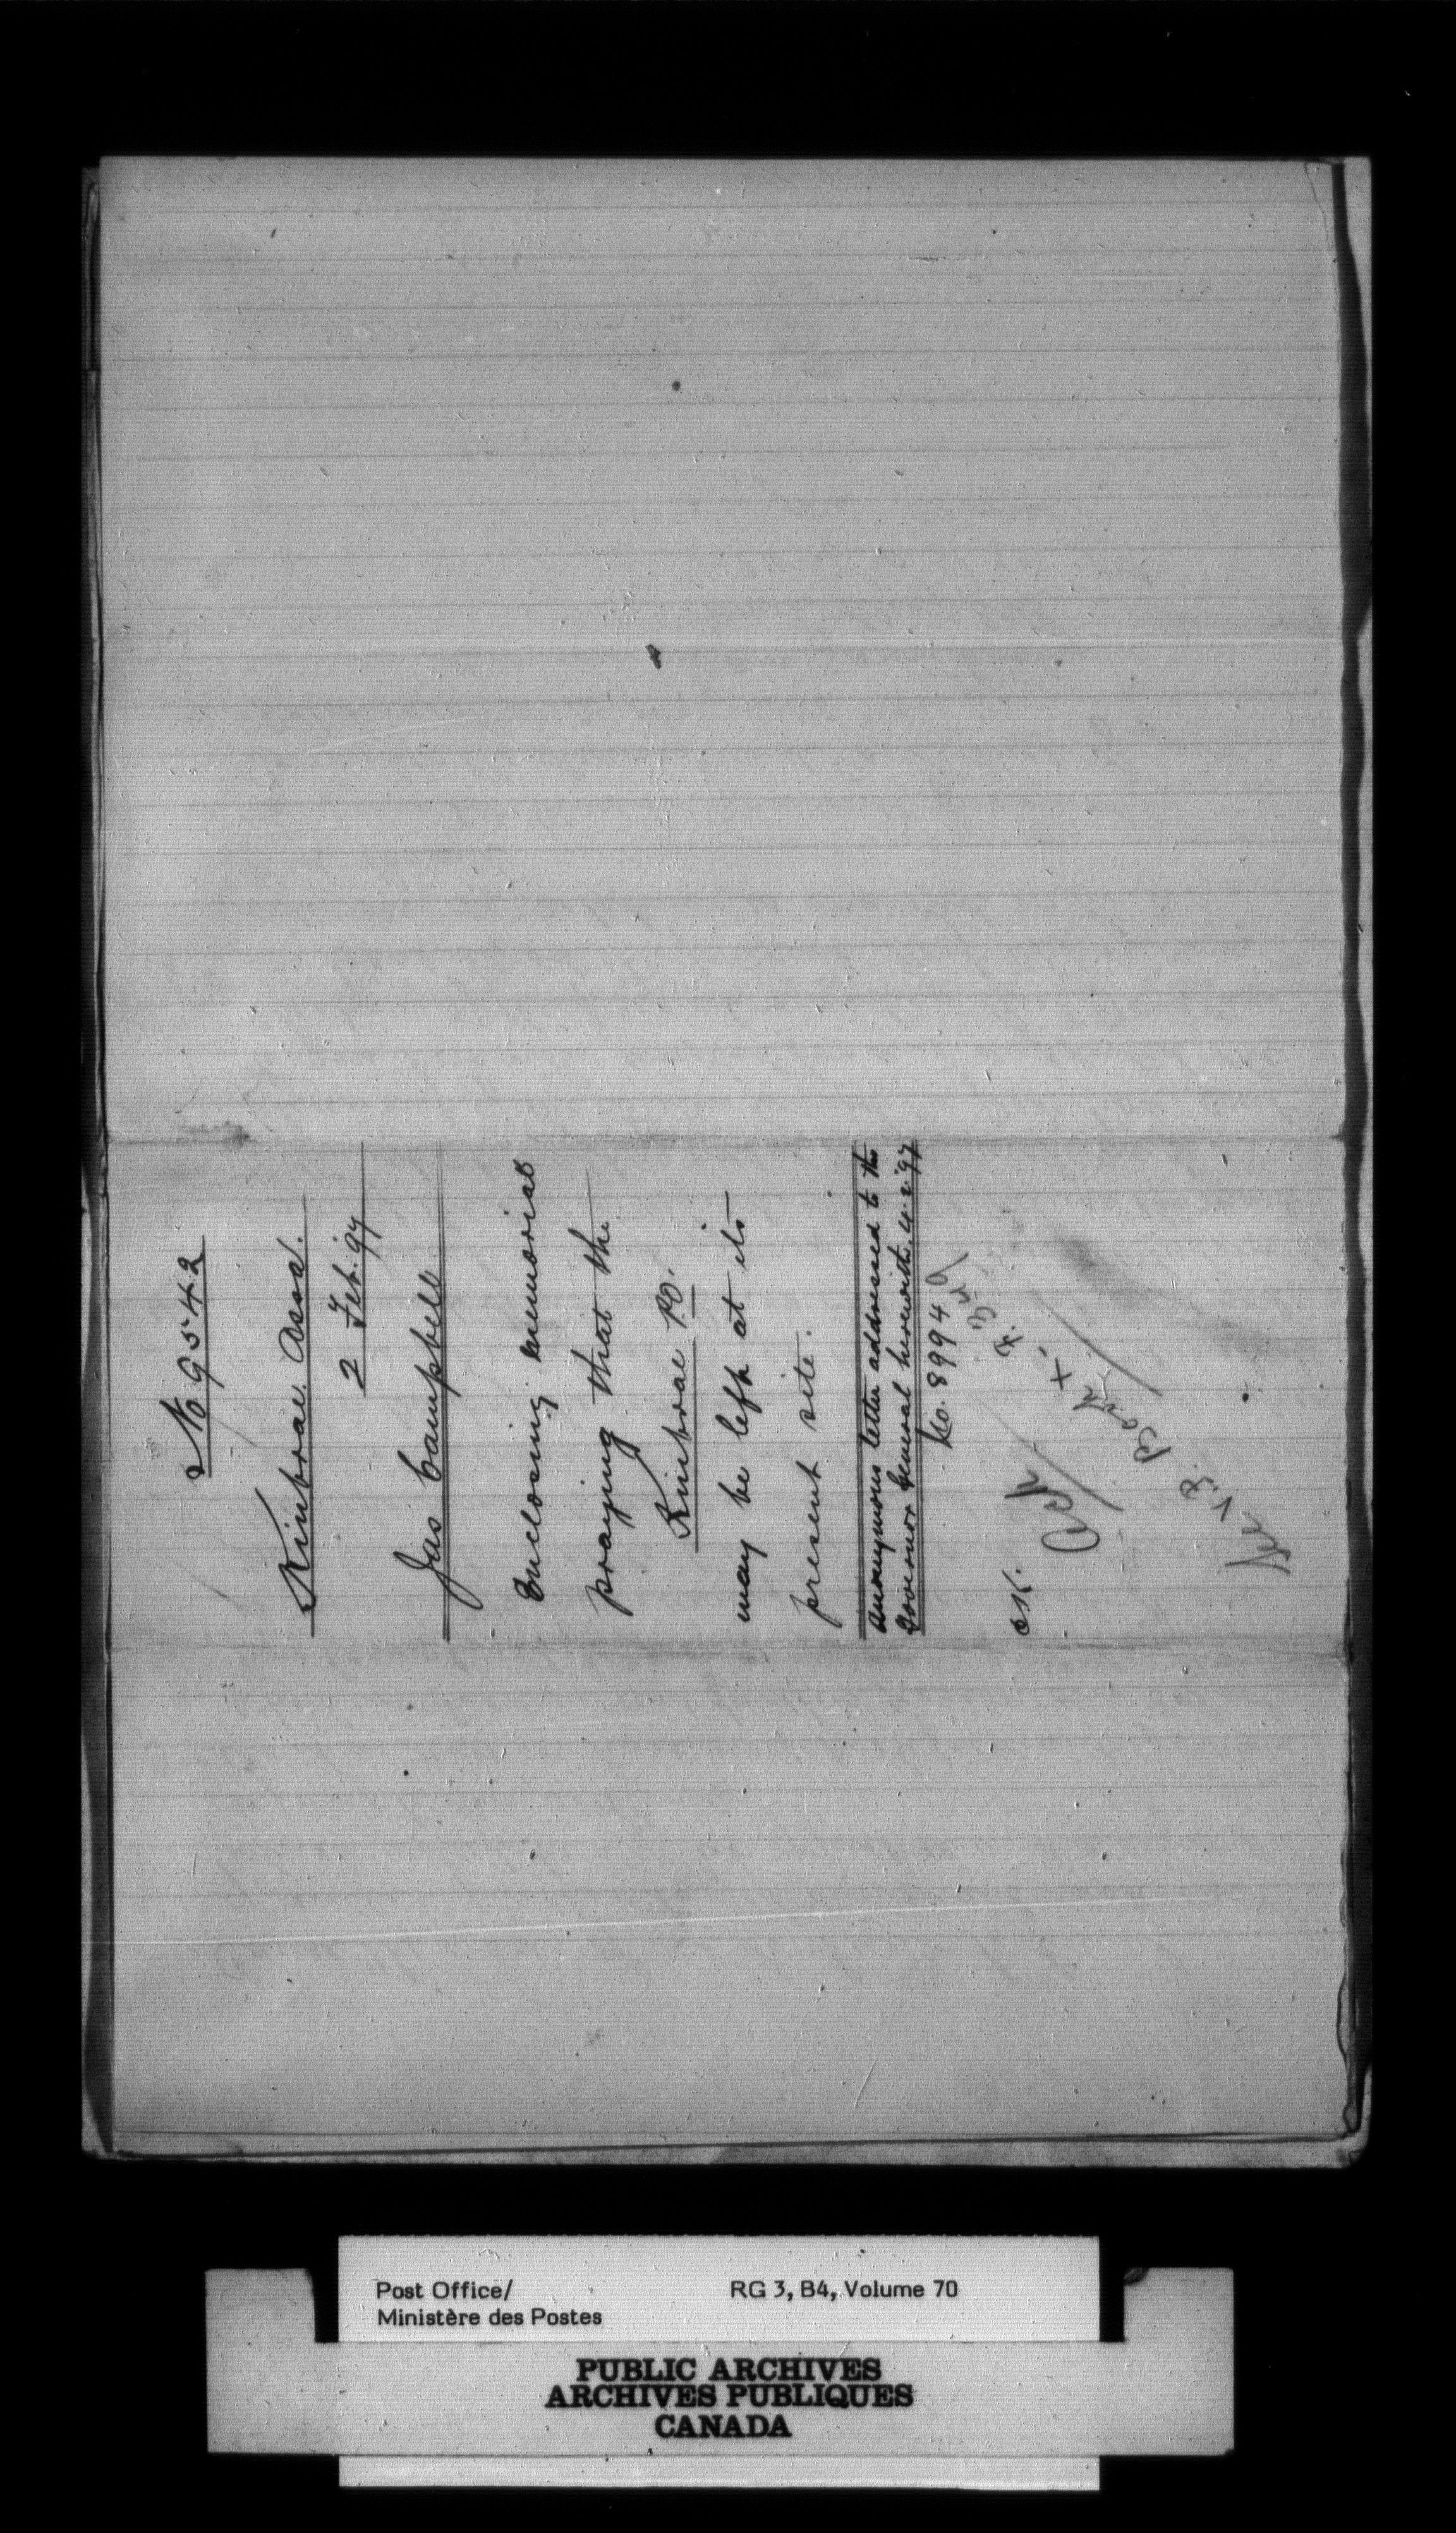 No 9542
Kinbrae. Assa.
2 Feb. 97
Jas Campbell
Enclosing memorial
praying that the
Kinbrae P.O.
may be left at its
present site.
Anonymous letter addressed to the
Governor General herewith. 4.2.97
No. 8994
OK.
Ack
See V.P. Book X
Post Office/
Ministère des Postes
RG 3, B4, Volume 70
PUBLIC ARCHIVES
ARCHIVES PUBLIQUES
CANADA